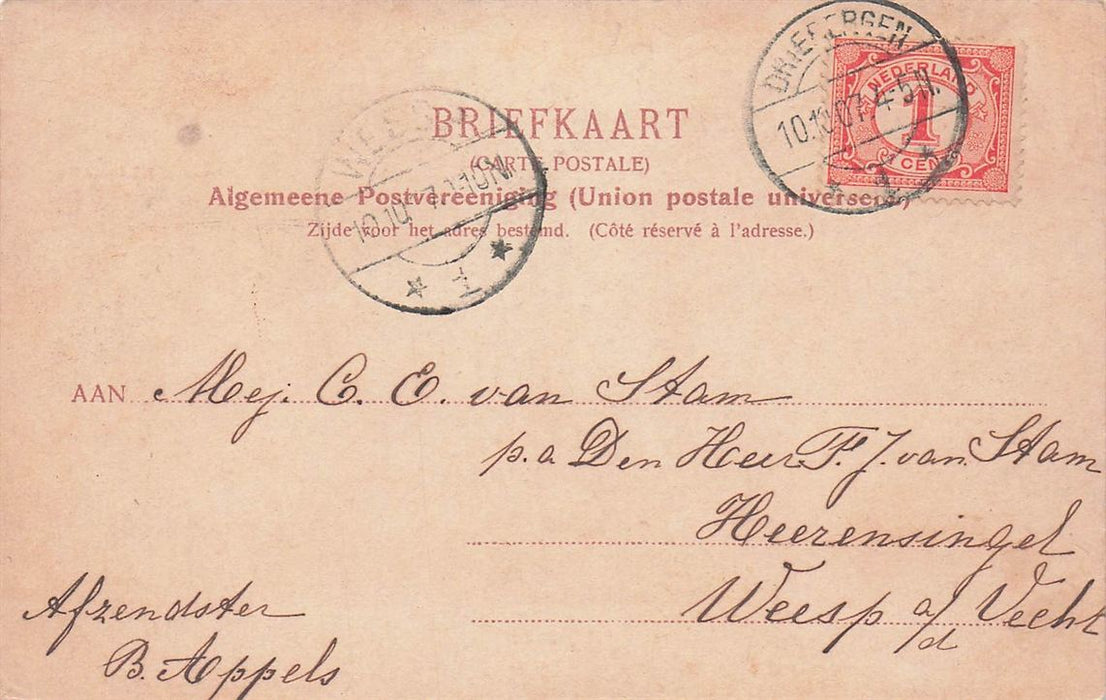 DRIEBERGEN
10.10.07 4-5 N.
1
NEDERLAND
1
CENT
WEESP
10.10 7 N
BRIEFKAART
(CARTE POSTALE)
Algemeene Postvereeniging (Union postale universelle)
Zijde voor het adres bestemd. (Côté réservé à l'adresse.)
AAN Mej. C. E. van Stam
p.a Den Heer F. J. van Stam
Heerensingel
Weesp a/d Vecht
Afzendster
B. Appels